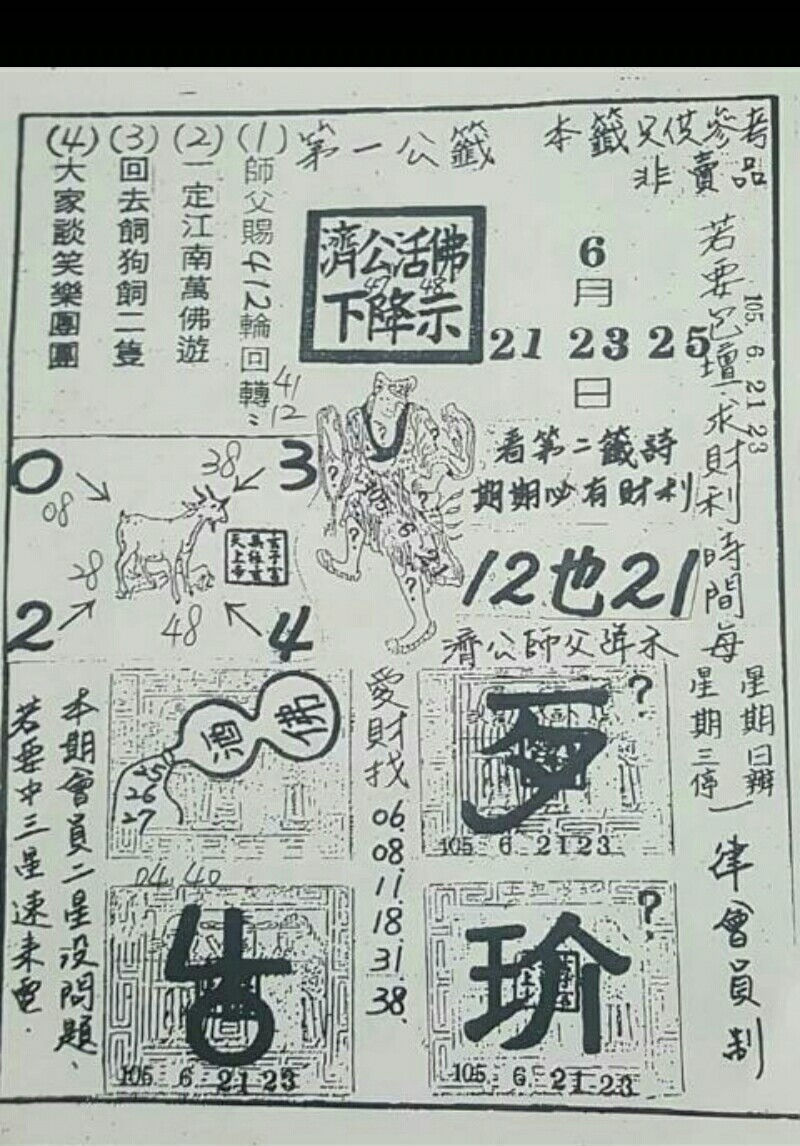 本籤只供參考
非賣品
第一公籤
(1)師父賜412輪回轉
(2)一定江南萬佛遊
(3)回去飼狗飼二隻
(4)大家談笑樂團團
濟公活佛
47 48
下降示
6
月
21 23 25
日
105. 6. 21 23
若要包壇求財利時間每
星期日辦
星期三停
一律會員制
41
12
看第二籤詩
期期必有財利
12也21
濟公師父詳示
0
3
2
4
08
38
28
48
佛
酒
25
26
27
愛財找
06
08
11
18
31
38
?
歹
105 6 21 23
04.40
105 6 21 23
?
玠
105 6 21 23
本期會員二星沒問題、
若要中三星速來電.